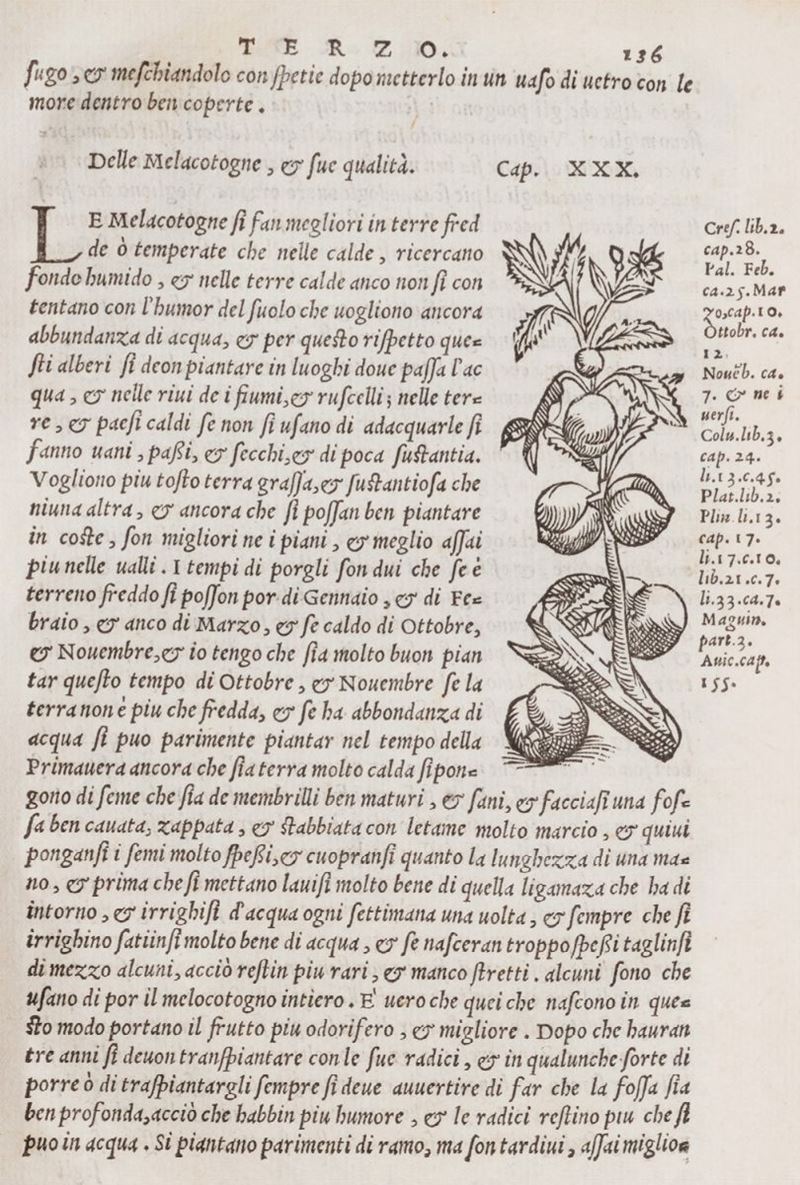 T E R Z O. 136
ſugo, & meſchiandolo con ſpetie dopo metterlo in un uaſo di uetro con le
more dentro ben coperte.
Delle Melacotogne, & ſue qualità. Cap. XXX.
LE Melacotogne ſi fan megliori in terre fred
de ò temperate che nelle calde, ricercano
fondo humido, & nelle terre calde anco non ſi con
tentano con l'humor del ſuolo che uogliono ancora
abbundanza di acqua, & per queſto riſpetto que=
ſti alberi ſi deon piantare in luoghi doue paſſa l'ac
qua, & nelle riui de i fiumi, & ruſcelli; nelle ter=
re, & paeſi caldi ſe non ſi uſano di adacquarle ſi
fanno uani, paßi, & ſecchi, & di poca ſuſtantia.
Vogliono piu toſto terra graſſa, & ſuſtantioſa che
niuna altra, & ancora che ſi poſſan ben piantare
in coſte, ſon migliori ne i piani, & meglio aſſai
piu nelle ualli. I tempi di porgli ſon dui che ſe è
terreno freddo ſi poſſon por di Gennaio, & di Fe=
braio, & anco di Marzo, & ſe caldo di Ottobre,
& Nouembre, & io tengo che ſia molto buon pian
tar queſto tempo di Ottobre, & Nouembre ſe la
terra non è piu che fredda, & ſe ha abbondanza di
acqua ſi puo parimente piantar nel tempo della
Primauera ancora che ſia terra molto calda ſi pon=
gono di ſeme che ſia de membrilli ben maturi, & ſani, & facciaſi una foſ=
ſa ben cauata, zappata, & ſtabbiata con letame molto marcio, & quiui
ponganſi i ſemi molto ſpeßi, & cuopranſi quanto la lunghezza di una ma=
no, & prima che ſi mettano lauiſi molto bene di quella ligamaza che ha di
intorno, & irrighiſi d'acqua ogni ſettimana una uolta, & ſempre che ſi
irrighino ſatiinſi molto bene di acqua, & ſe naſceran troppo ſpeßi taglinſi
di mezzo alcuni, acciò reſtin piu rari, & manco ſtretti. alcuni ſono che
uſano di por il melocotogno intiero. E' uero che quei che naſcono in que=
ſto modo portano il frutto piu odorifero, & migliore. Dopo che hauran
tre anni ſi deuon tranſpiantare con le ſue radici, & in qualunche ſorte di
porre ò di traſpiantargli ſempre ſi deue auuertire di far che la foſſa ſia
ben profonda, acciò che habbin piu humore, & le radici reſtino piu che ſi
puo in acqua. Si piantano parimenti di ramo, ma ſon tardiui, aſſai miglio=
Creſ. lib.2.
cap.28.
Pal. Feb.
ca.25. Mar
zo, cap.10.
Ottobr. ca.
12.
Nouēb. ca.
7. & ne i
uerſi.
Colu. lib.3.
cap. 24.
li.13.c.45.
Plat. lib.2.
Plin. li.13.
cap. 17.
li.17.c.10.
lib.21.c.7.
li.33.ca.7.
Maguin.
part.3.
Auic. cap.
155.